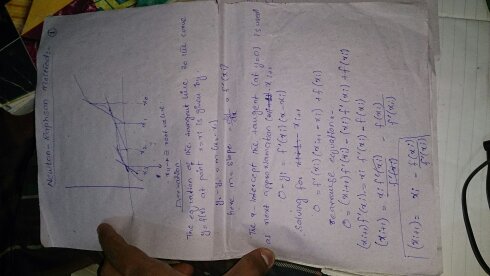 Newton-Raphson method:- ①
x₃ x₂ x₁ x₀
x₀ → root value
Derivation
The equation of the tangent line to the curve
y=f(x) at point x=xi is given by,
y-yi = m(x-xi)
here m=slope = dy/dx = f'(xi)
The x-intercept the tangent (at y=0) is used
as next approximation xi+1
0-yi = f'(xi)(x-xi)
Solving for xi+1
0 = f'(xi)(xi+1-xi)+f(xi)
rearrange equation:-
0=(xi+1)f'(xi)-(xi)f'(xi)+f(xi)
(xi+1)f'(xi)=xi f'(xi)-f(xi)
(xi+1) = xi f'(xi)/f'(xi) - f(xi)/f'(xi)
(xi+1) = xi - f(xi)/f'(xi)